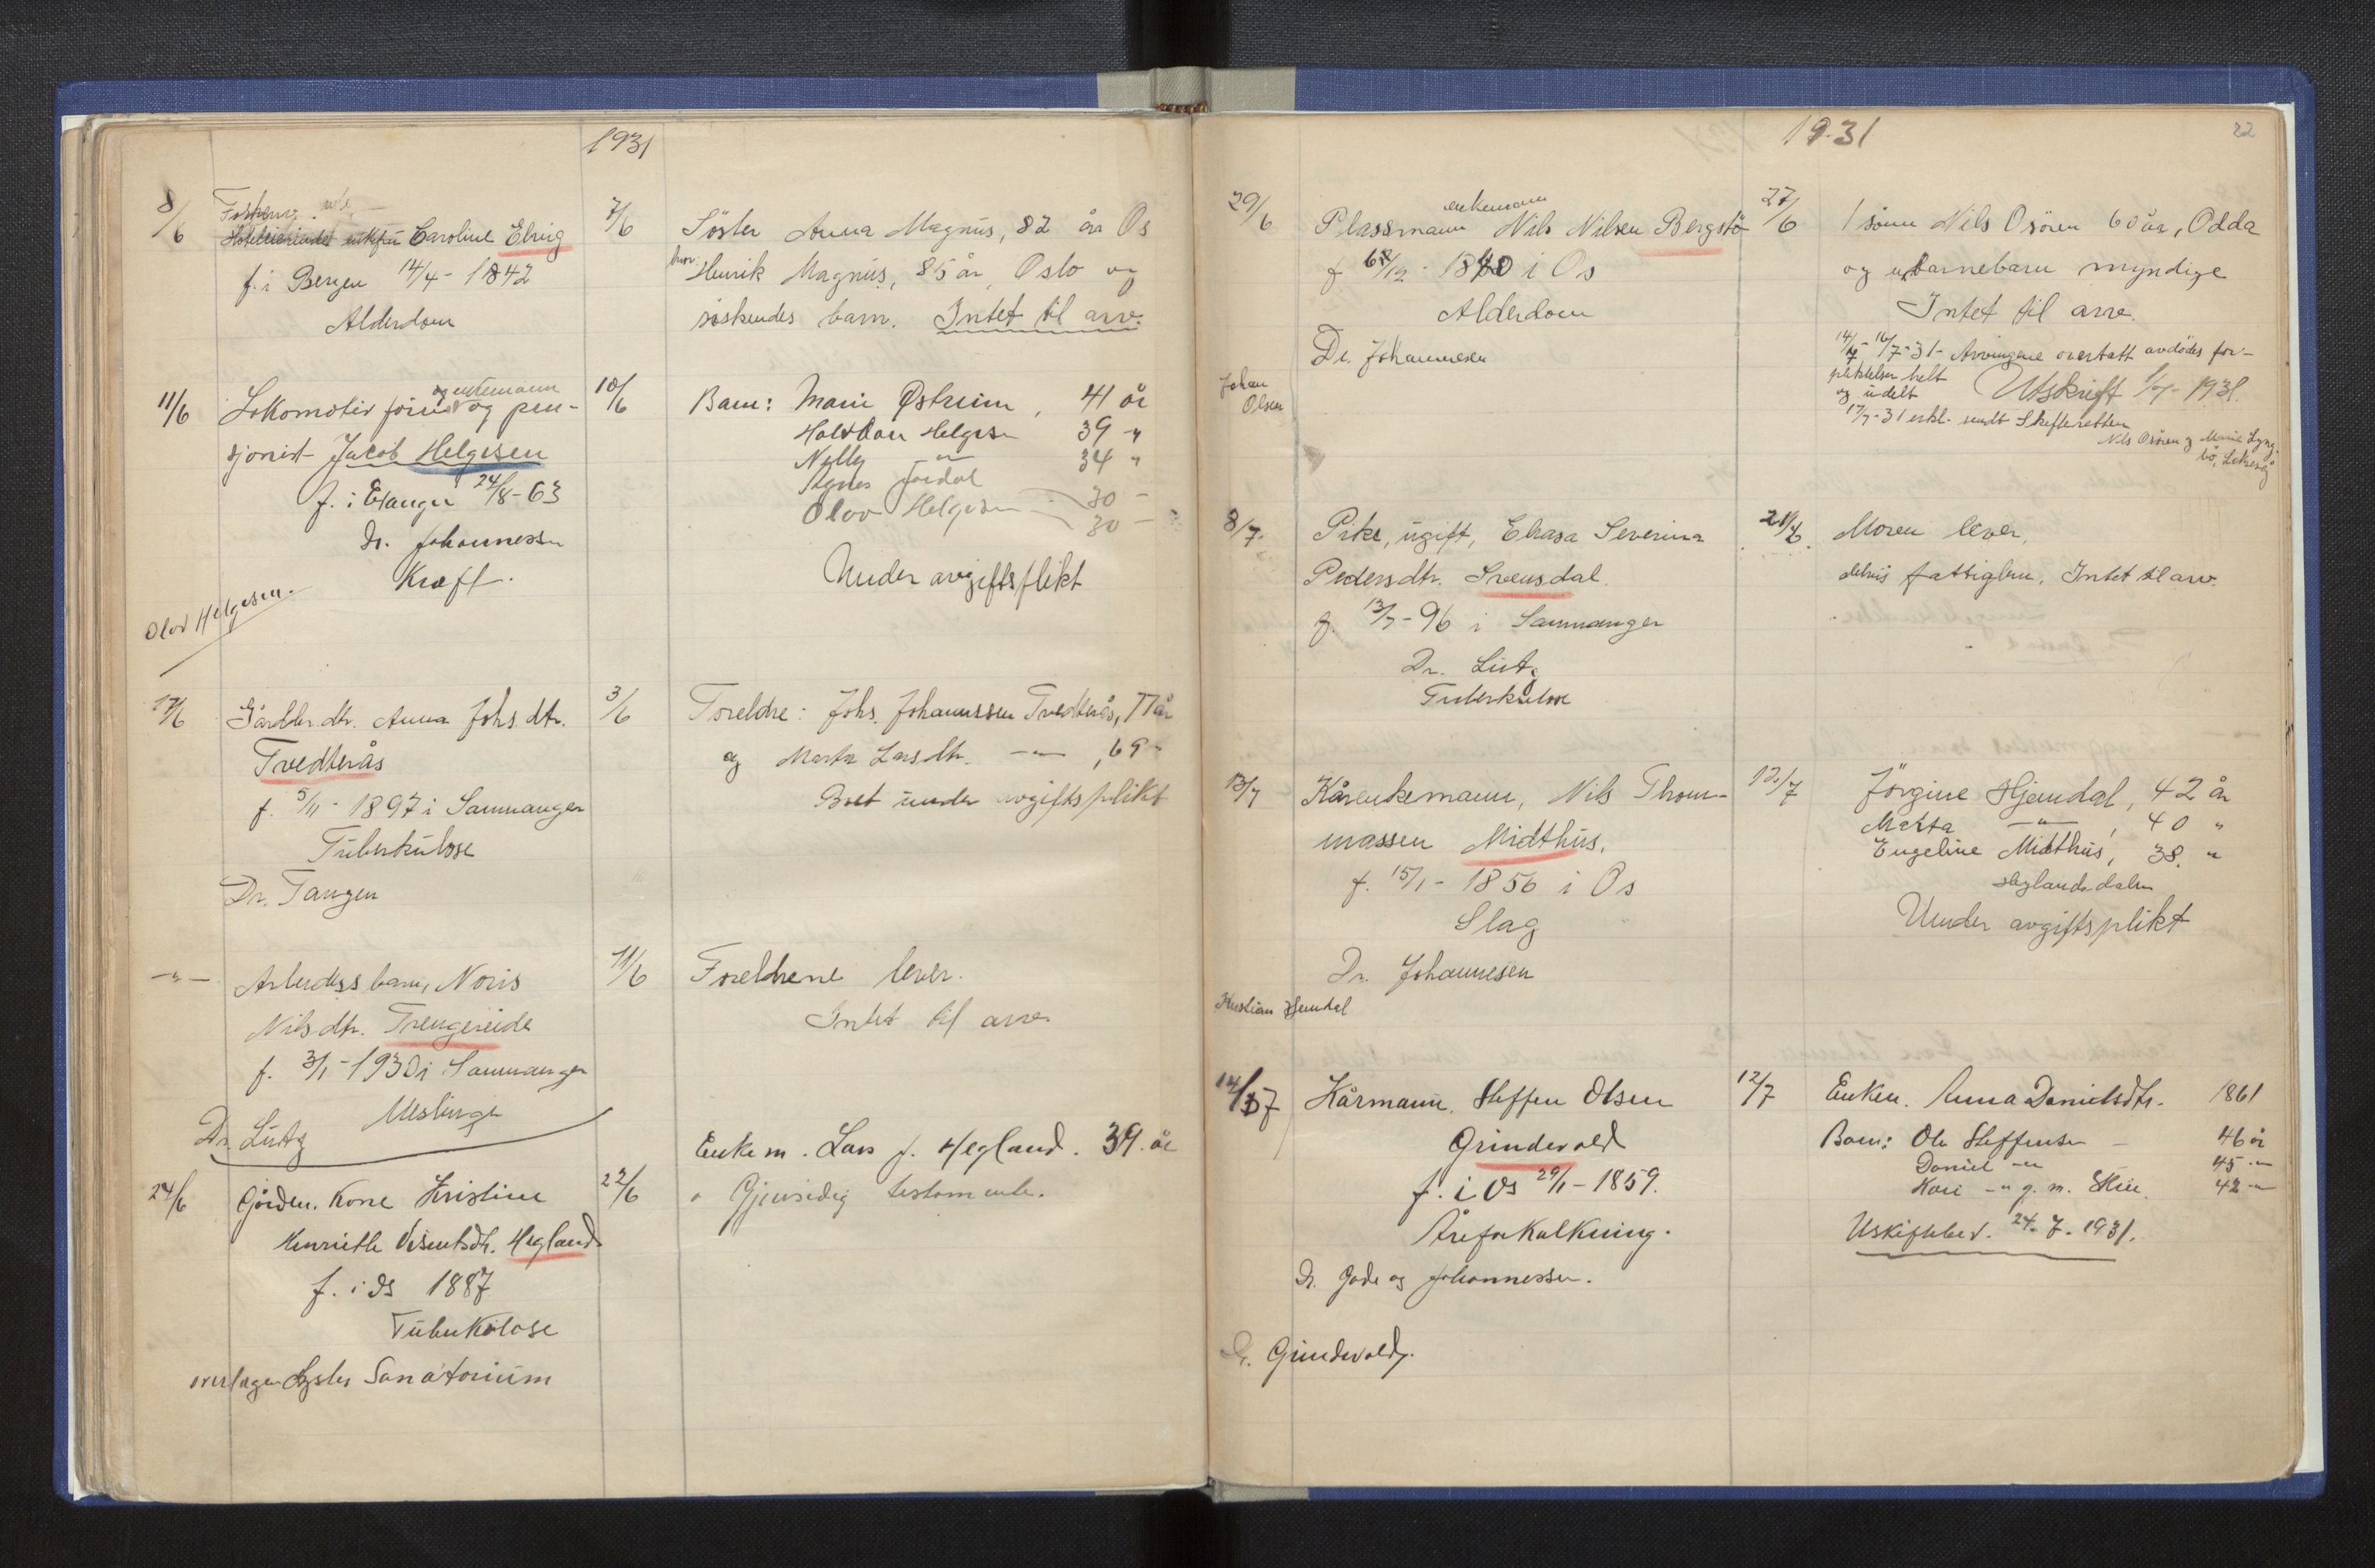 1931
8/6 Caroline Elvig 7/6 Söster Anna Magnus, 82 år Os
f. i Bergen 14/4 - 1842 Henrik Magnus, 85 år, Oslo og
Alderdom söskendes barn. Intet til arv.
og enkemann
11/6 Lokomotiv förer og pen- 10/6 Barn: Marie Østreim, 41 år
sjonist Jacob Helgesen Halvdan Helgesen 39 "
Nelly -"- 34 "
Agnes Jordal 30 -
f. i Etanger 24/8 - 63 Olov Helgesen 30 -
Dr. Johannessen
Kræft. Under avgiftsplikt
Olov Helgesen.
17/6 Gårdbr. dtr. Anna Johs dtr. 3/6 Foreldre: Johs. Johannssen Tvedterås, 77 år
Tvedterås og Marta Larsdtr. -"-, 69 "
f. 5/11 - 1897 i Samnanger Boet under avgiftsplikt
Tuberkulose
Dr. Tangen
-"- Arbeiders barn, Noris 11/6 Foreldrene lever.
Nilsdtr. Trengereide Intet til arv.
f. 3/1 - 1930 i Samnanger
Meslinger
Dr. Lutz
Enkem. Lars J. Hegland. 39 år
24/6 Gårdm. kone Kristine 22/6 Gjensidig testamente.
Henriette Hegland
f. i Os 1887
Tuberkolose
overlægen Lyster Sanatorium
1931 22
enkemann
29/6 Plassmann Nils Nilsen Bergstö 27/6 1 sönn Nils Osören 60 år, Odda
i Os og barnebarn myndige
Alderdom Intet til arv.
Dr. Johannesen 16/7-31 - Arvingene overtatt avdödes for-
Johan pliktelser helt
Olsen og udelt Utskrift 1/7 - 1931.
17/7-31 erkl. sendt Skifteretten
Nils Osören og Marie Lyng-
bö,
8/7. Pike, ugift, Severina Moren lever,
Pedersdtr. Svensdal. fattiglem. Intet til arv.
f. 13/7 - 96 i Samnanger
Dr. Lutz
Tuberkulose
13/7 Kårenkemann, Nils Thom- 12/7 Jörgine Hjemdal, 42 år
massen Midthus. Marta -"-, 40 "
Engeline Midthus, 38. "
f. 15/1 - 1856 i Os Heglandsdalen
Slag Under avgiftsplikt
Dr. Johannesen
Kristian Hjemdal
14/7 Kårmann. Steffen Olsen 12/7 Enken. Anna Danielsdtr. 1861
Grindevold Barn: Ole Steffensen - 46 år
Daniel -"- 45 -"-
f. i Os 29/1 - 1859. Kari -"- g. m. 42 -"-
Åreforkalkning. Uskiftebev. 24. 7. 1931.
Dr. Gade og Johannessen.
Grindevold.